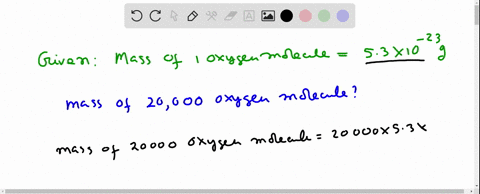 Given: Mass of 1 oxygen molecule = 5.3×10⁻²³ g
mass of 20,000 oxygen molecule?
mass of 20000 oxygen molecule = 20000×5.3×